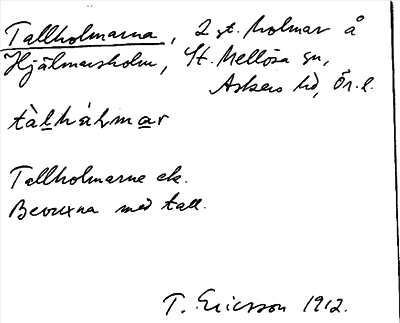 Tallholmarna, 2 st. holmar å
Hjälmarsholm, St. Mellösa sn,
Askers hd, Ör. l.
tàlhál̵mar
Tallholmarne ek.
Bevuxna med tall.
T. Ericsson 1912.